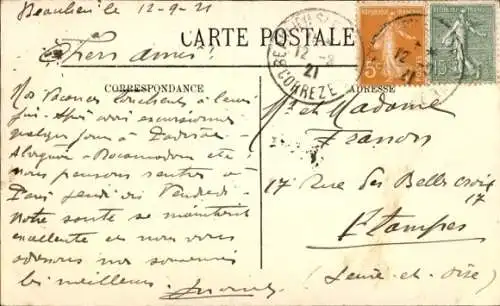 Beaulieu le 12-9-21
CARTE POSTALE
BEAULIEU S
12 -9
21
CORREZE
12
21
5c
15c
Chers amis!
CORRESPONDANCE
ADRESSE
Nos Vacances touchent à leur
fin - Après avoir excursionné
quelques jours à Padirac -
Rocamadour etc,
nous pensons rentrer à
Paris jeudi ou Vendredi -
Notre santé se maintient
excellente et nous vous
adressons nos
les meilleurs.
Mr et Madame
Franon
17 Rue des Belles Croix
17
Etampes
(Seine-et-Oise)